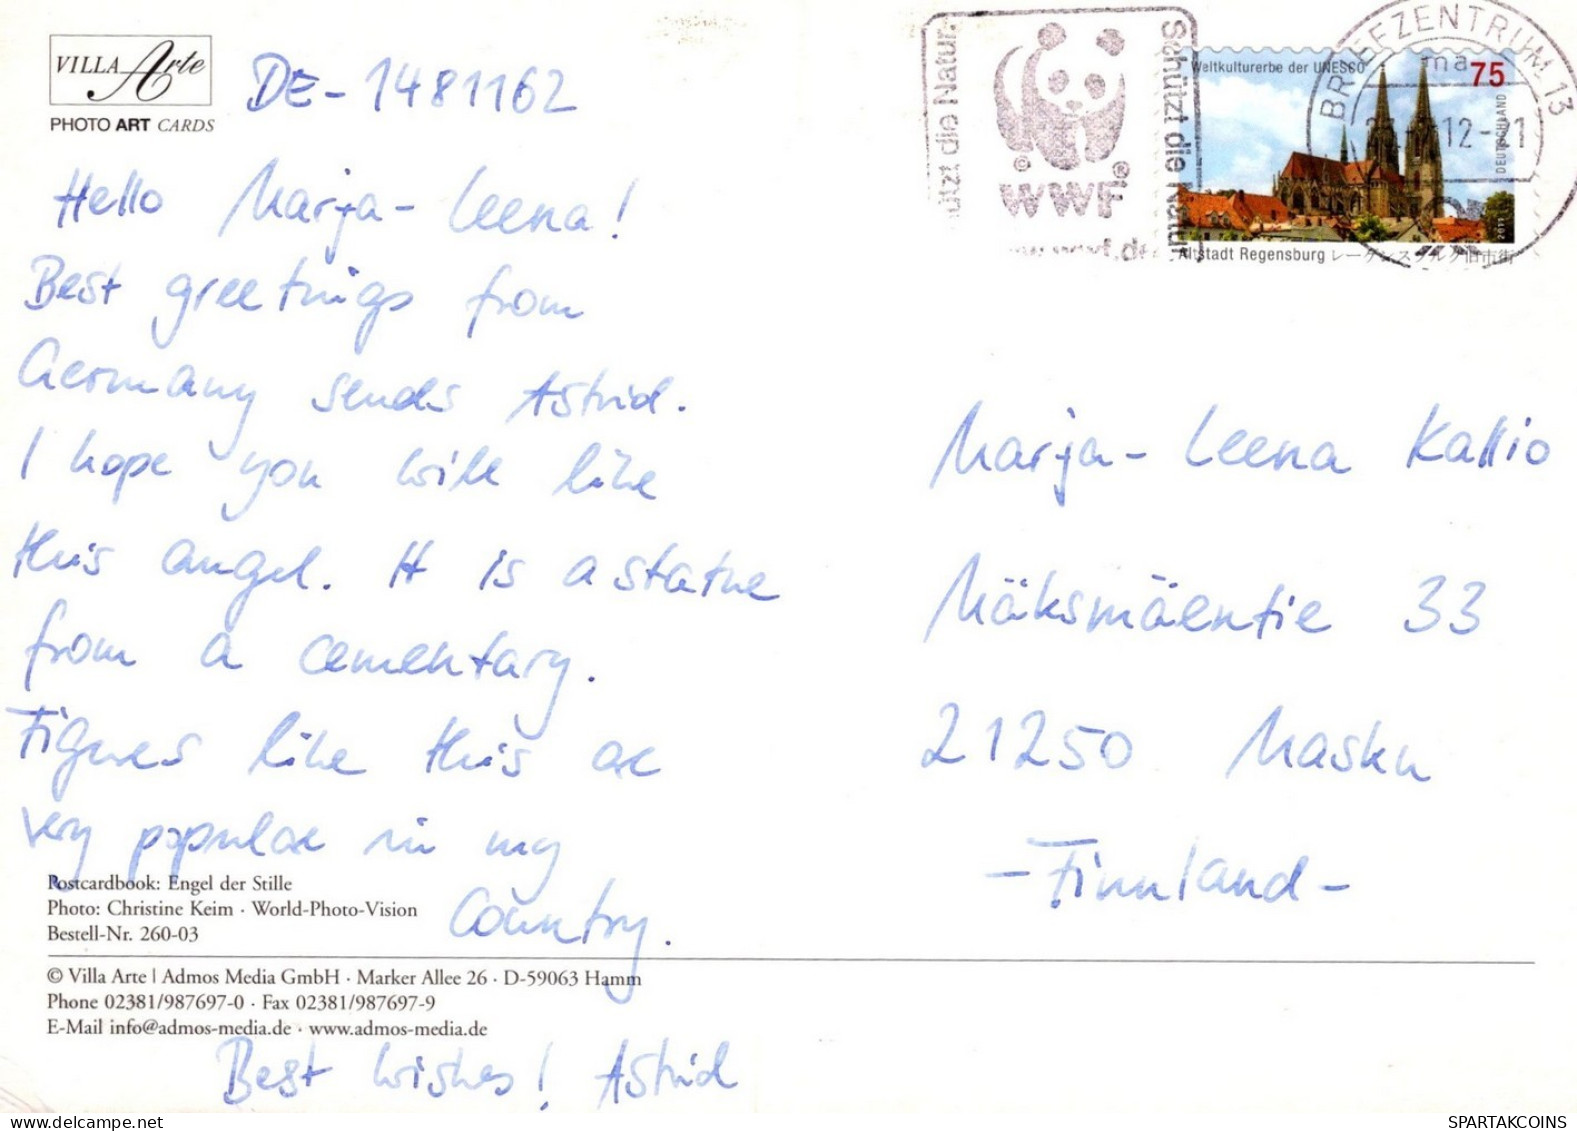 VILLA Arte
PHOTO ART CARDS
DE-1481162
Hello Marja-Leena!
Best greetings from
Germany sends Astrid.
I hope you will like
this angel. It is a statue
from a cementary.
Figures like this are
very popular in my
Country.
Postcardbook: Engel der Stille
Photo: Christine Keim · World-Photo-Vision
Bestell-Nr. 260-03
© Villa Arte | Admos Media GmbH · Marker Allee 26 · D-59063 Hamm
Phone 02381/987697-0 · Fax 02381/987697-9
E-Mail info@admos-media.de · www.admos-media.de
Best wishes! Astrid
Schützt die Natur
© WWF ®
Weltkulturerbe der UNESCO
75
DEUTSCHLAND
2011
Altstadt Regensburg レーゲンスブルク旧市街
BRIEFZENTRUM 13
Marja-Leena Kallio
Mäksmäentie 33
21250 Masku
-Finnland-
SPARTAKCOINS